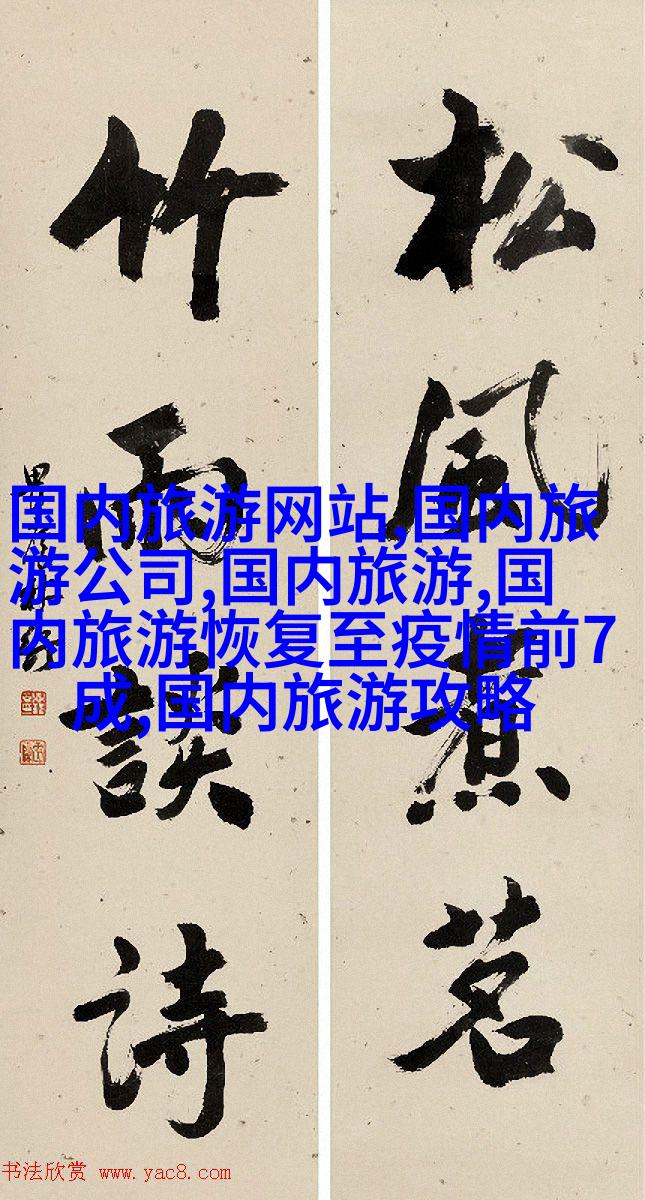 松風煮茗
竹雨談詩
国内旅游网站,国内旅
游公司,国内旅游,国
内旅游恢复至疫情前7
成,国内旅游攻略
书法欣赏 www.yac8.com